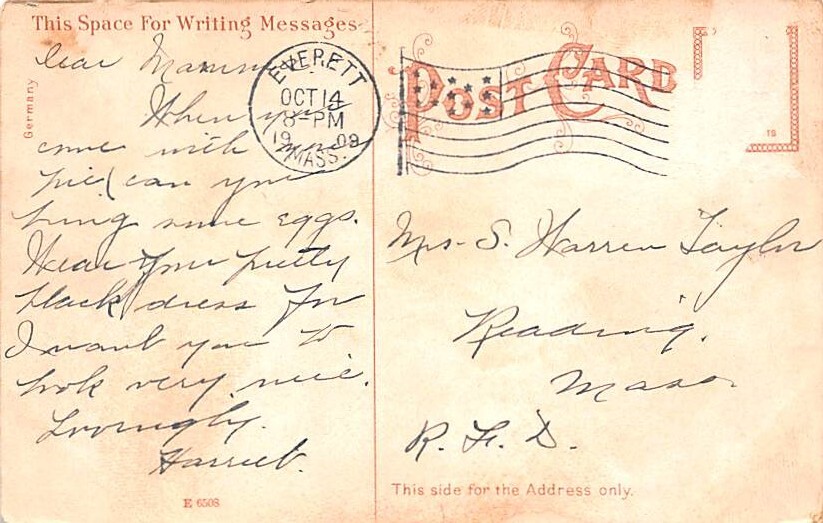 This Space For Writing Messages
Germany
Dear Mamma
When you
come with
pie can you
bring some eggs.
Wear your pretty
black dress for
I want you to
look very nice.
Lovingly.
Harriet.
E 6508
EVERETT
OCT 14
8-PM
1909
MASS.
POST CARD
15
Mrs. S. Warren Taylor
Reading.
Mass.
R. F. D.
This side for the Address only.